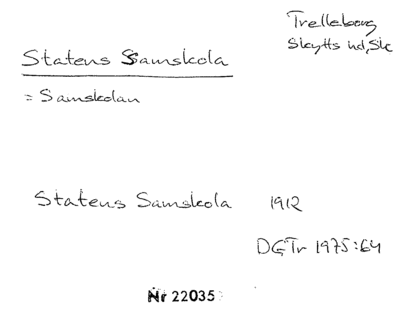 Trelleborg
Skytts hd, Sk
Statens Samskola
= Samskolan
Statens Samskola 1912
DGTr 1975:64
Nr 22035